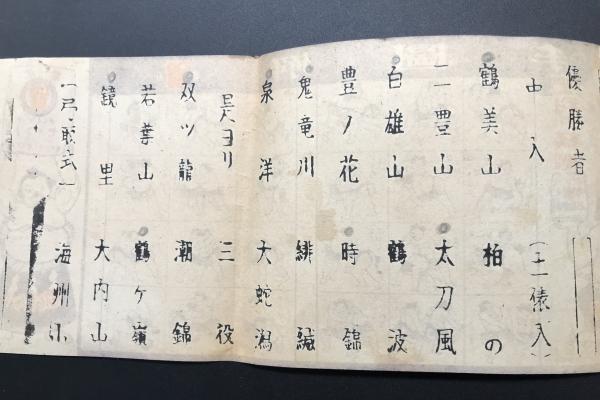 優勝者
中入 (土俵入)
鶴美山 柏の
二豊山 太刀風
白雄山 鶴波
豊ノ花 時錦
鬼竜川 緋縅
泉洋 大蛇潟
是ヨリ 三役
双ツ龍 潮錦
若葉山 鶴ヶ嶺
鏡里 大内山
(弓取式) 海州